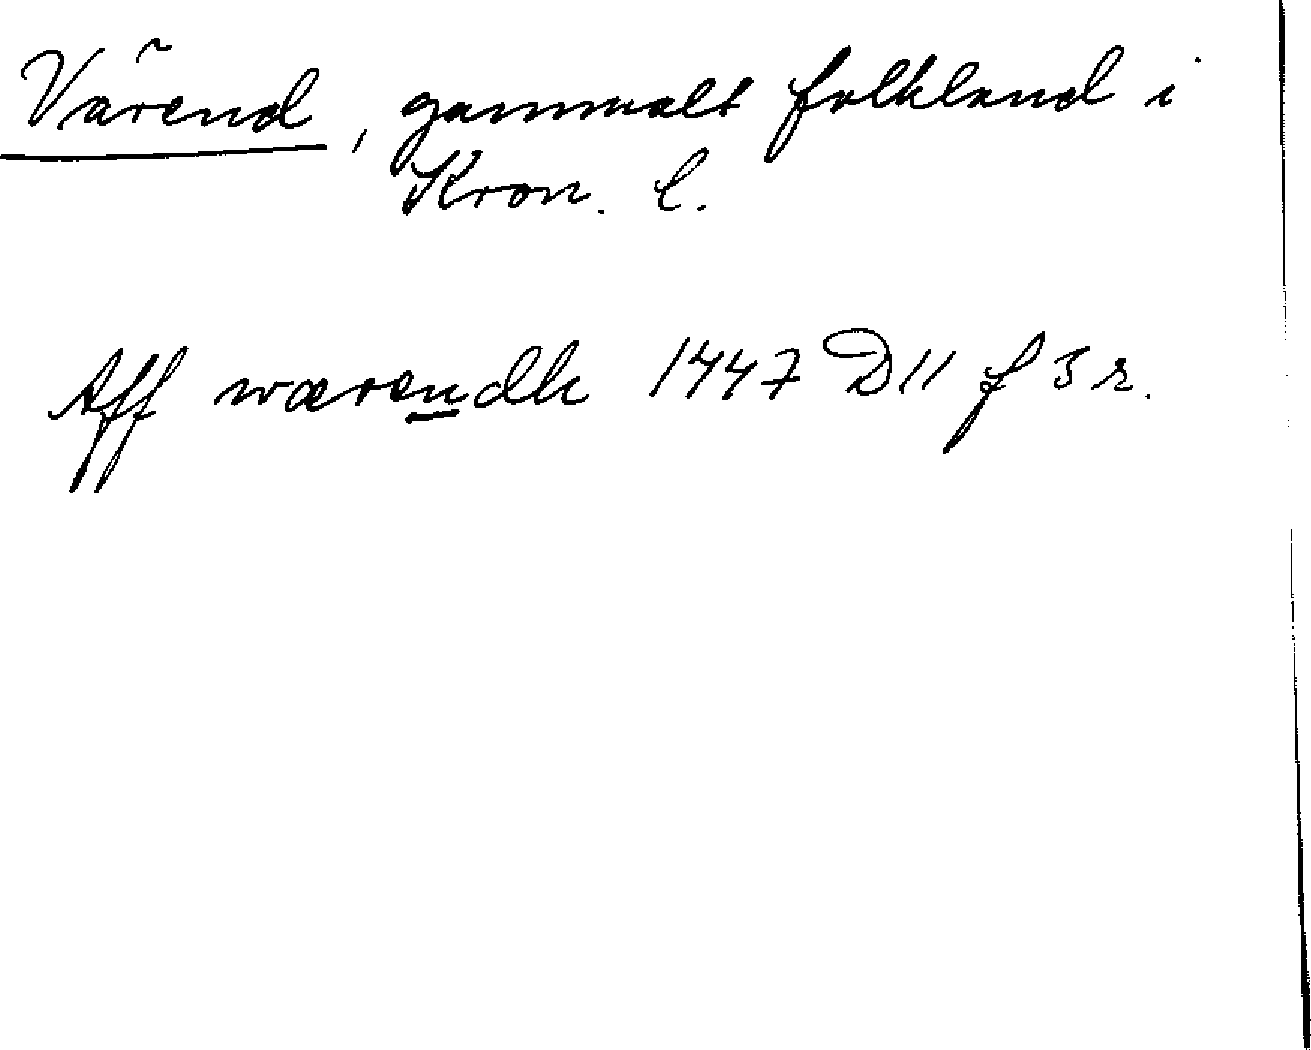 Värend, gammalt folkland i
Kron. l.
Aff wærendh 1447 D11 f 3 r.